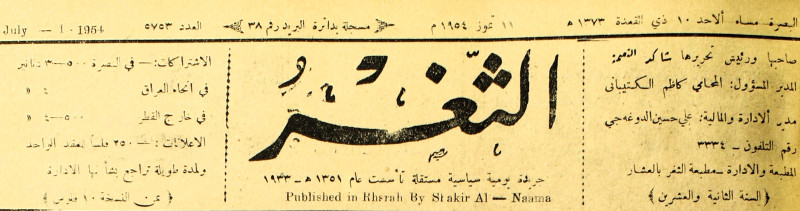 البصرة مساء الاحد ١٠ ذي القعدة ١٣٧٣ هـ
١١ تموز ١٩٥٤ م
مسجلة بدائرة البريد رقم ٣٨
العدد ٥٧٥٣
July — 1 · 1954
صاحبها ورئيس تحريرها شاكر النعمة
المدير المسؤول: المحامي كاظم الكتيباني
مدير الادارة والمالية: علي حسين الدوغه جي
رقم التلفون — ٣٣٣٤
المطبعة والادارة — مطبعة الثغر بالعشار
﴿ السنة الثانية والعشرين ﴾
الثغر
جريدة يومية سياسية مستقلة تأسست عام ١٣٥١ هـ — ١٩٣٣
Published in Bhsrah By Stakir Al — Naama
الاشتراكات: — في البصرة ٥٠٠ — ٣ دنانير
في انحاء العراق ٤ »
في خارج القطر ٥٠٠ — ٤ »
الاعلانات: — ٢٥٠ فلساً بعقد الواحد
ولمدة طويلة تراجع بشأنها الادارة
﴿ ثمن النسخة ١٠ فلوس ﴾